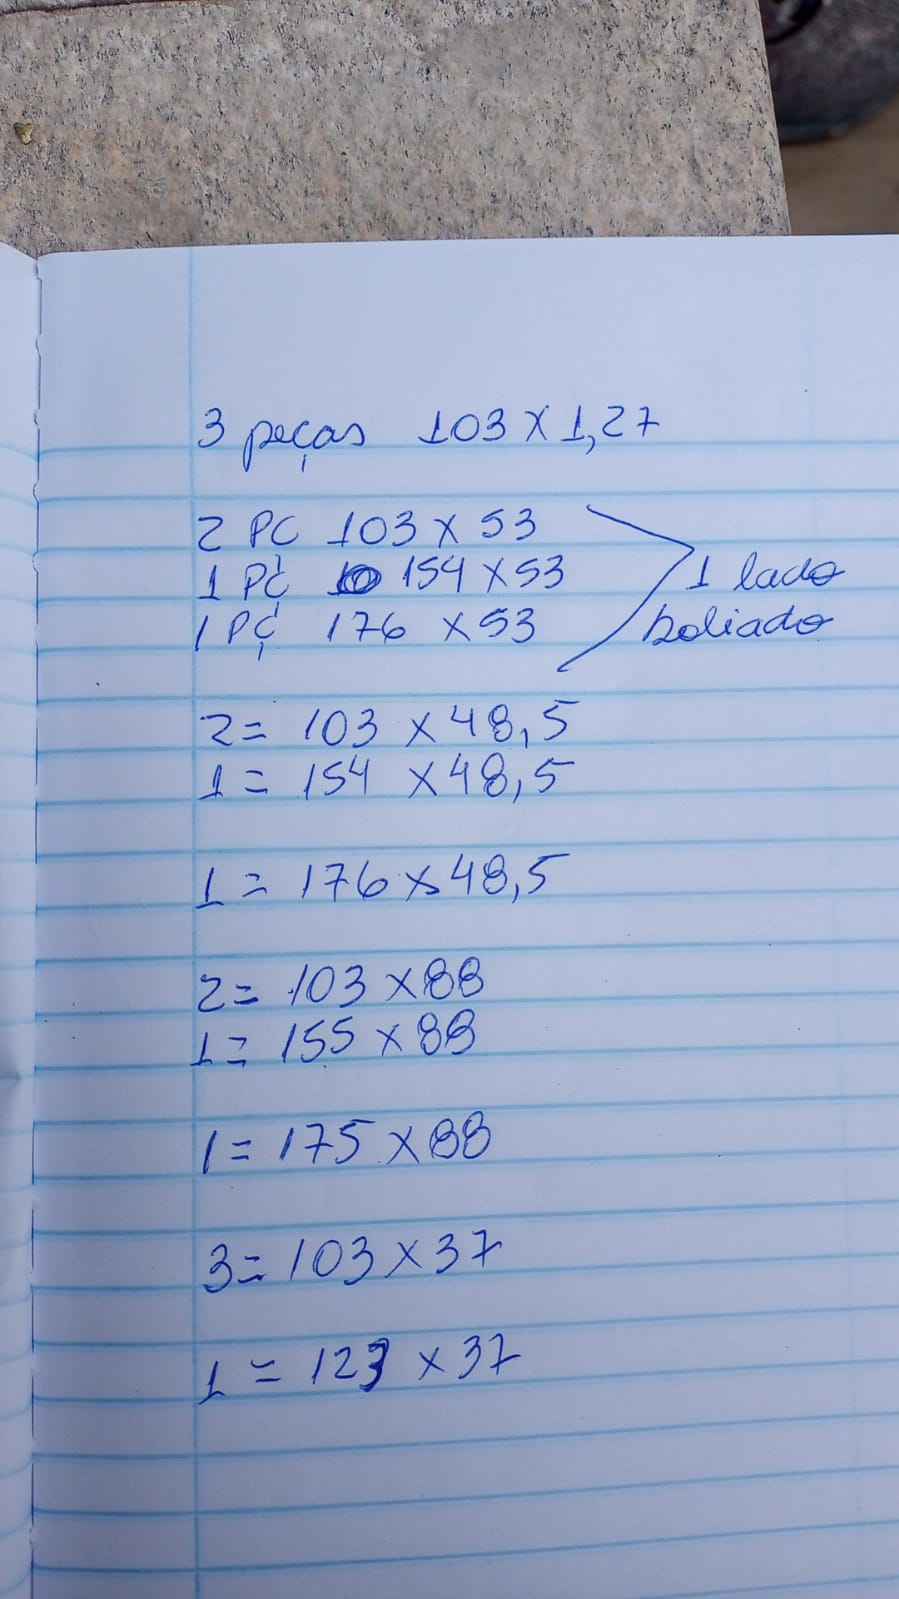 3 peças 103 X 1,27
2 PC 103 X 53
1 PÇ 154 X 53
1 PÇ 176 X 53
1 lado
boliado
2 = 103 X 48,5
1 = 154 X 48,5
1 = 176 X 48,5
2 = 103 X 88
1 = 155 X 88
1 = 175 X 88
3 = 103 X 37
1 = 123 X 37